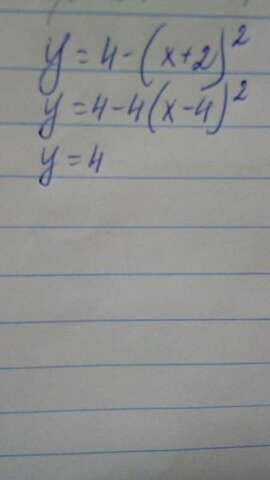 y = 4 - (x+2)²
y = 4 - 4(x-4)²
y = 4